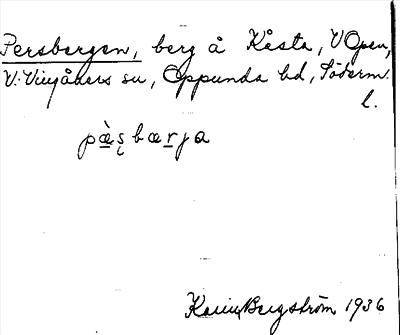 Persbergen, berg å Kåsta, V Open,
V. Vingåkers sn, Oppunda hd, Söderm.
l.
pæ̀s̨bærja
Karin Bergström 1936